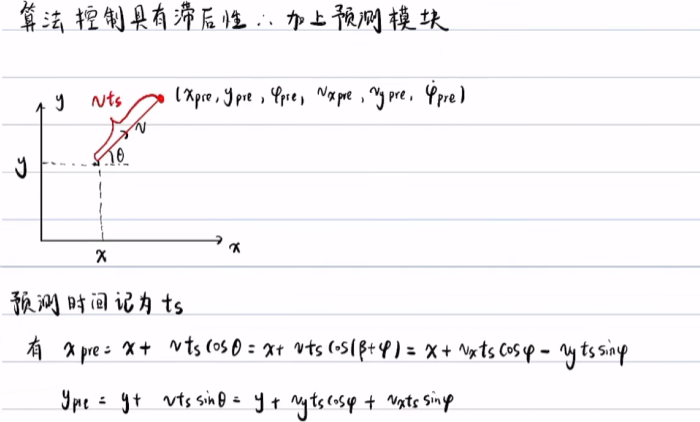 算法控制具有滞后性∴加上预测模块
y vts (xpre, ypre, φpre, vxpre, vypre, φ̇pre)
v
θ
y
x x
预测时间记为ts
有 xpre = x + vts cosθ = x + vts cos(β+φ) = x + vxts cosφ - vytssinφ
ypre = y + vts sinθ = y + vytscosφ + vxts sinφ